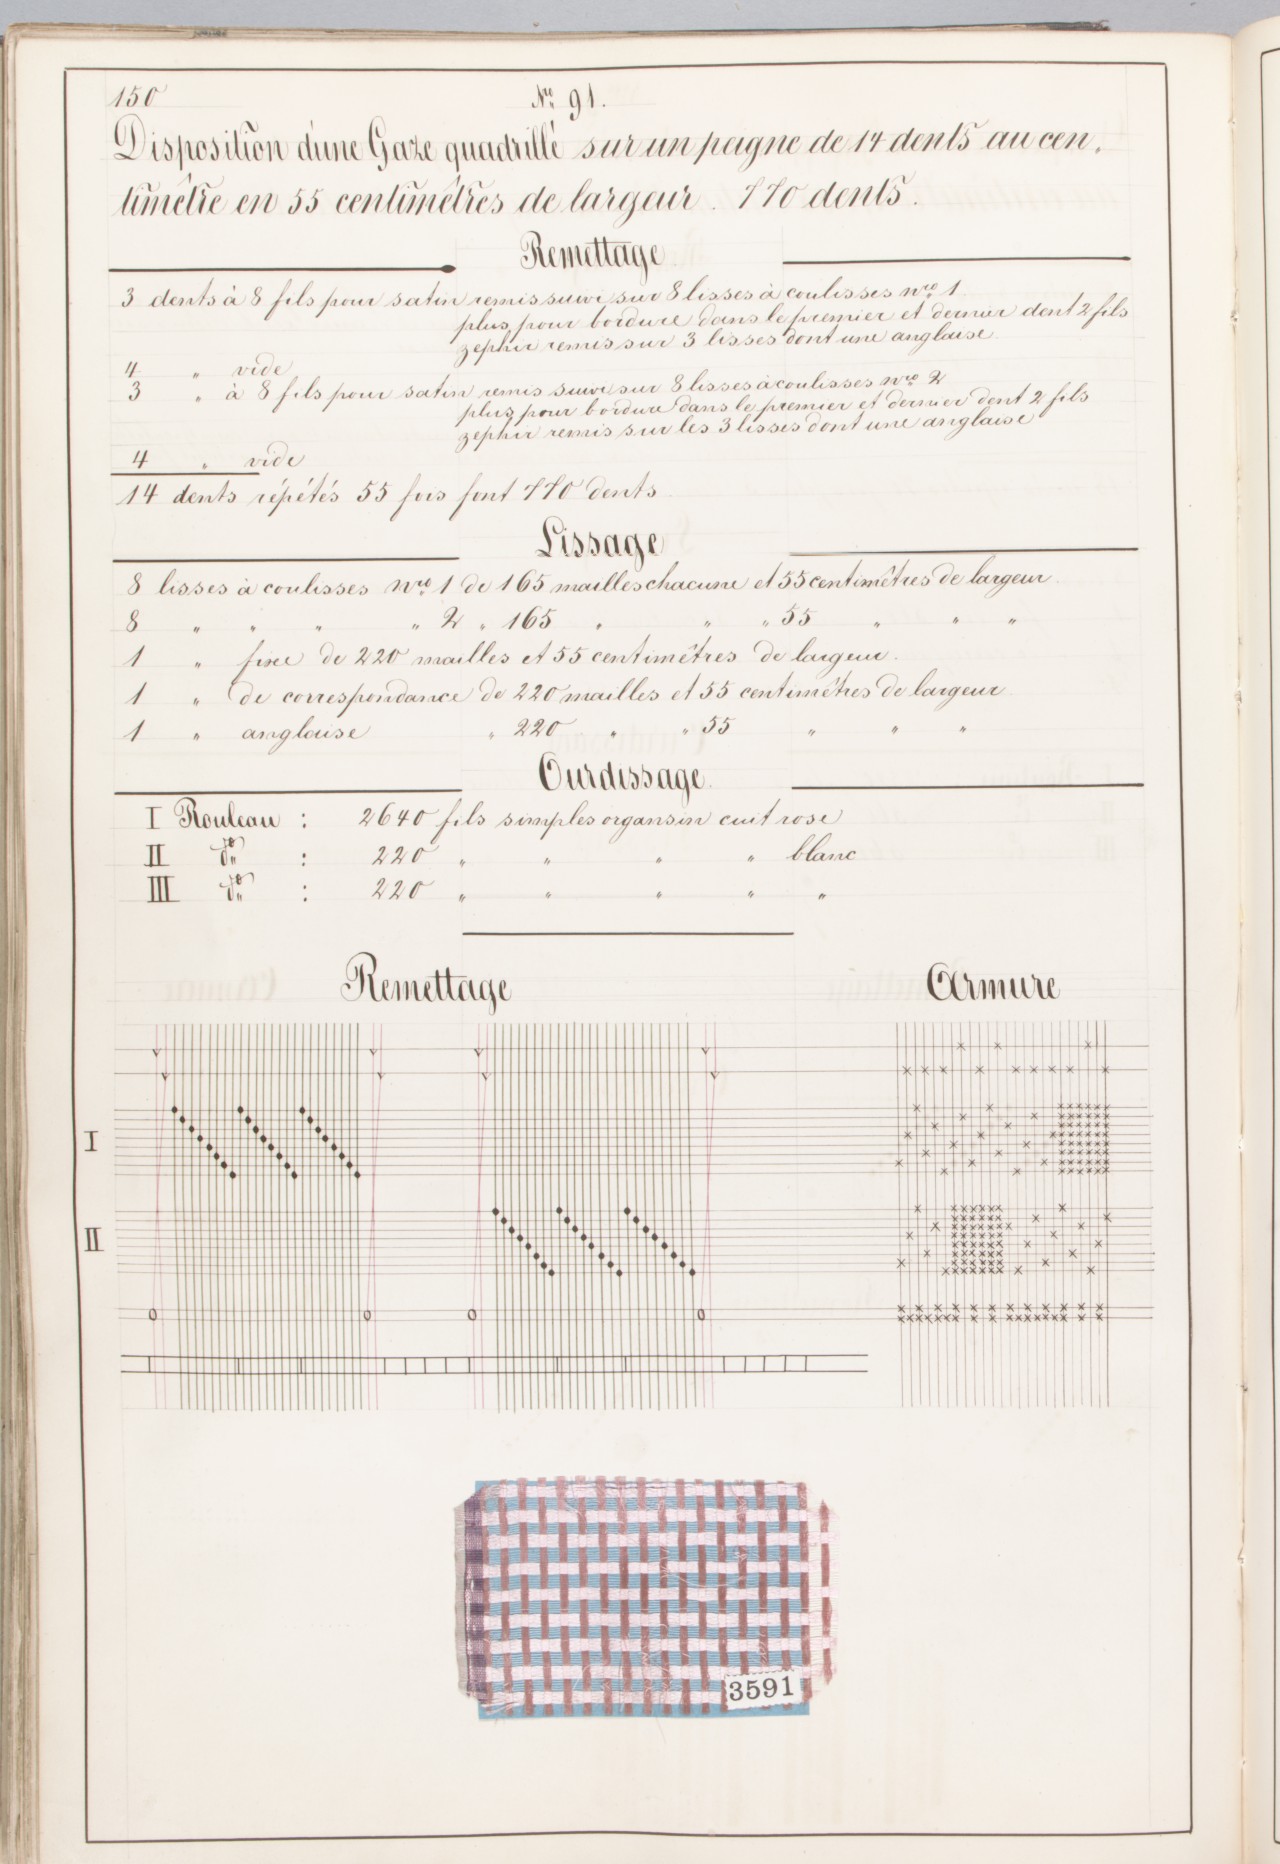 150
N.º 91.
Disposition d'une Gaze quadrillé sur un pagne de 14 dents au cen.
timêtre en 55 centimêtres de largeur. 770 dents.
Remettage
3 dents à 8 fils pour satin remis suivi sur 8 lisses à coulisses nro 1
plus pour bordure dans le premier et dernier dent 2 fils
zephir remis sur 3 lisses dont une anglaise.
4 " vide
3 " à 8 fils pour satin remis suivi sur 8 lisses à coulisses nro 2
plus pour bordure dans le premier et dernier dent 2 fils
zephir remis sur les 3 lisses dont une anglaise
4 " vide
14 dents répétés 55 fois font 770 dents
Lissage
8 lisses à coulisses nro 1 de 165 mailles chacune et 55 centimêtres de largeur.
8 " " " " 2 " 165 " " " 55 " " "
1 " fixe de 220 mailles et 55 centimêtres de largeur.
1 " de correspondance de 220 mailles et 55 centimêtres de largeur
1 " anglaise " 220 " " 55 " " "
Ourdissage.
I Rouleau : 2640 fils simples organsin cuit rose
II do : 220 " " " " blanc
III do : 220 " " " " "
Remettage
Armure
I
II
3591